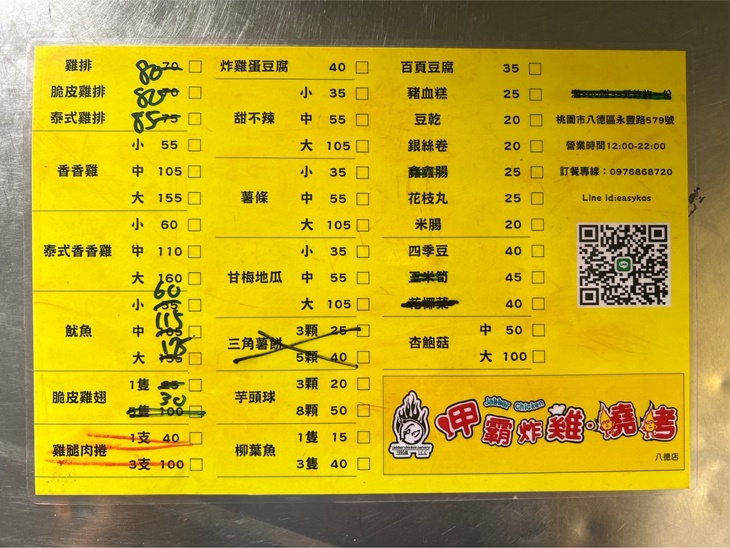 雞排 80 70
脆皮雞排 80
泰式雞排 85 75
香香雞 小 55
中 105
大 155
泰式香香雞 小 60
中 110
大 160
魷魚 小 60 55
中 115 105
大 175 155
脆皮雞翅 1隻 30
5隻 100
雞腿肉捲 1支 40
3支 100
炸雞蛋豆腐 40
甜不辣 小 35
中 55
大 105
薯條 小 35
中 55
大 105
甘梅地瓜 小 35
中 55
大 105
三角薯餅 3顆 25
5顆 40
芋頭球 3顆 20
8顆 50
柳葉魚 1隻 15
3隻 40
百頁豆腐 35
豬血糕 25
豆乾 20
銀絲卷 20
鑫鑫腸 25
花枝丸 25
米腸 20
四季豆 40
玉米筍 45
花椰菜 40
杏鮑菇 中 50
大 100
桃園市八德區永豐路579號
營業時間12:00-22:00
訂餐專線：0976868720
Line id:easykos
Jabber Chicken
呷霸炸雞·燒烤
八德店